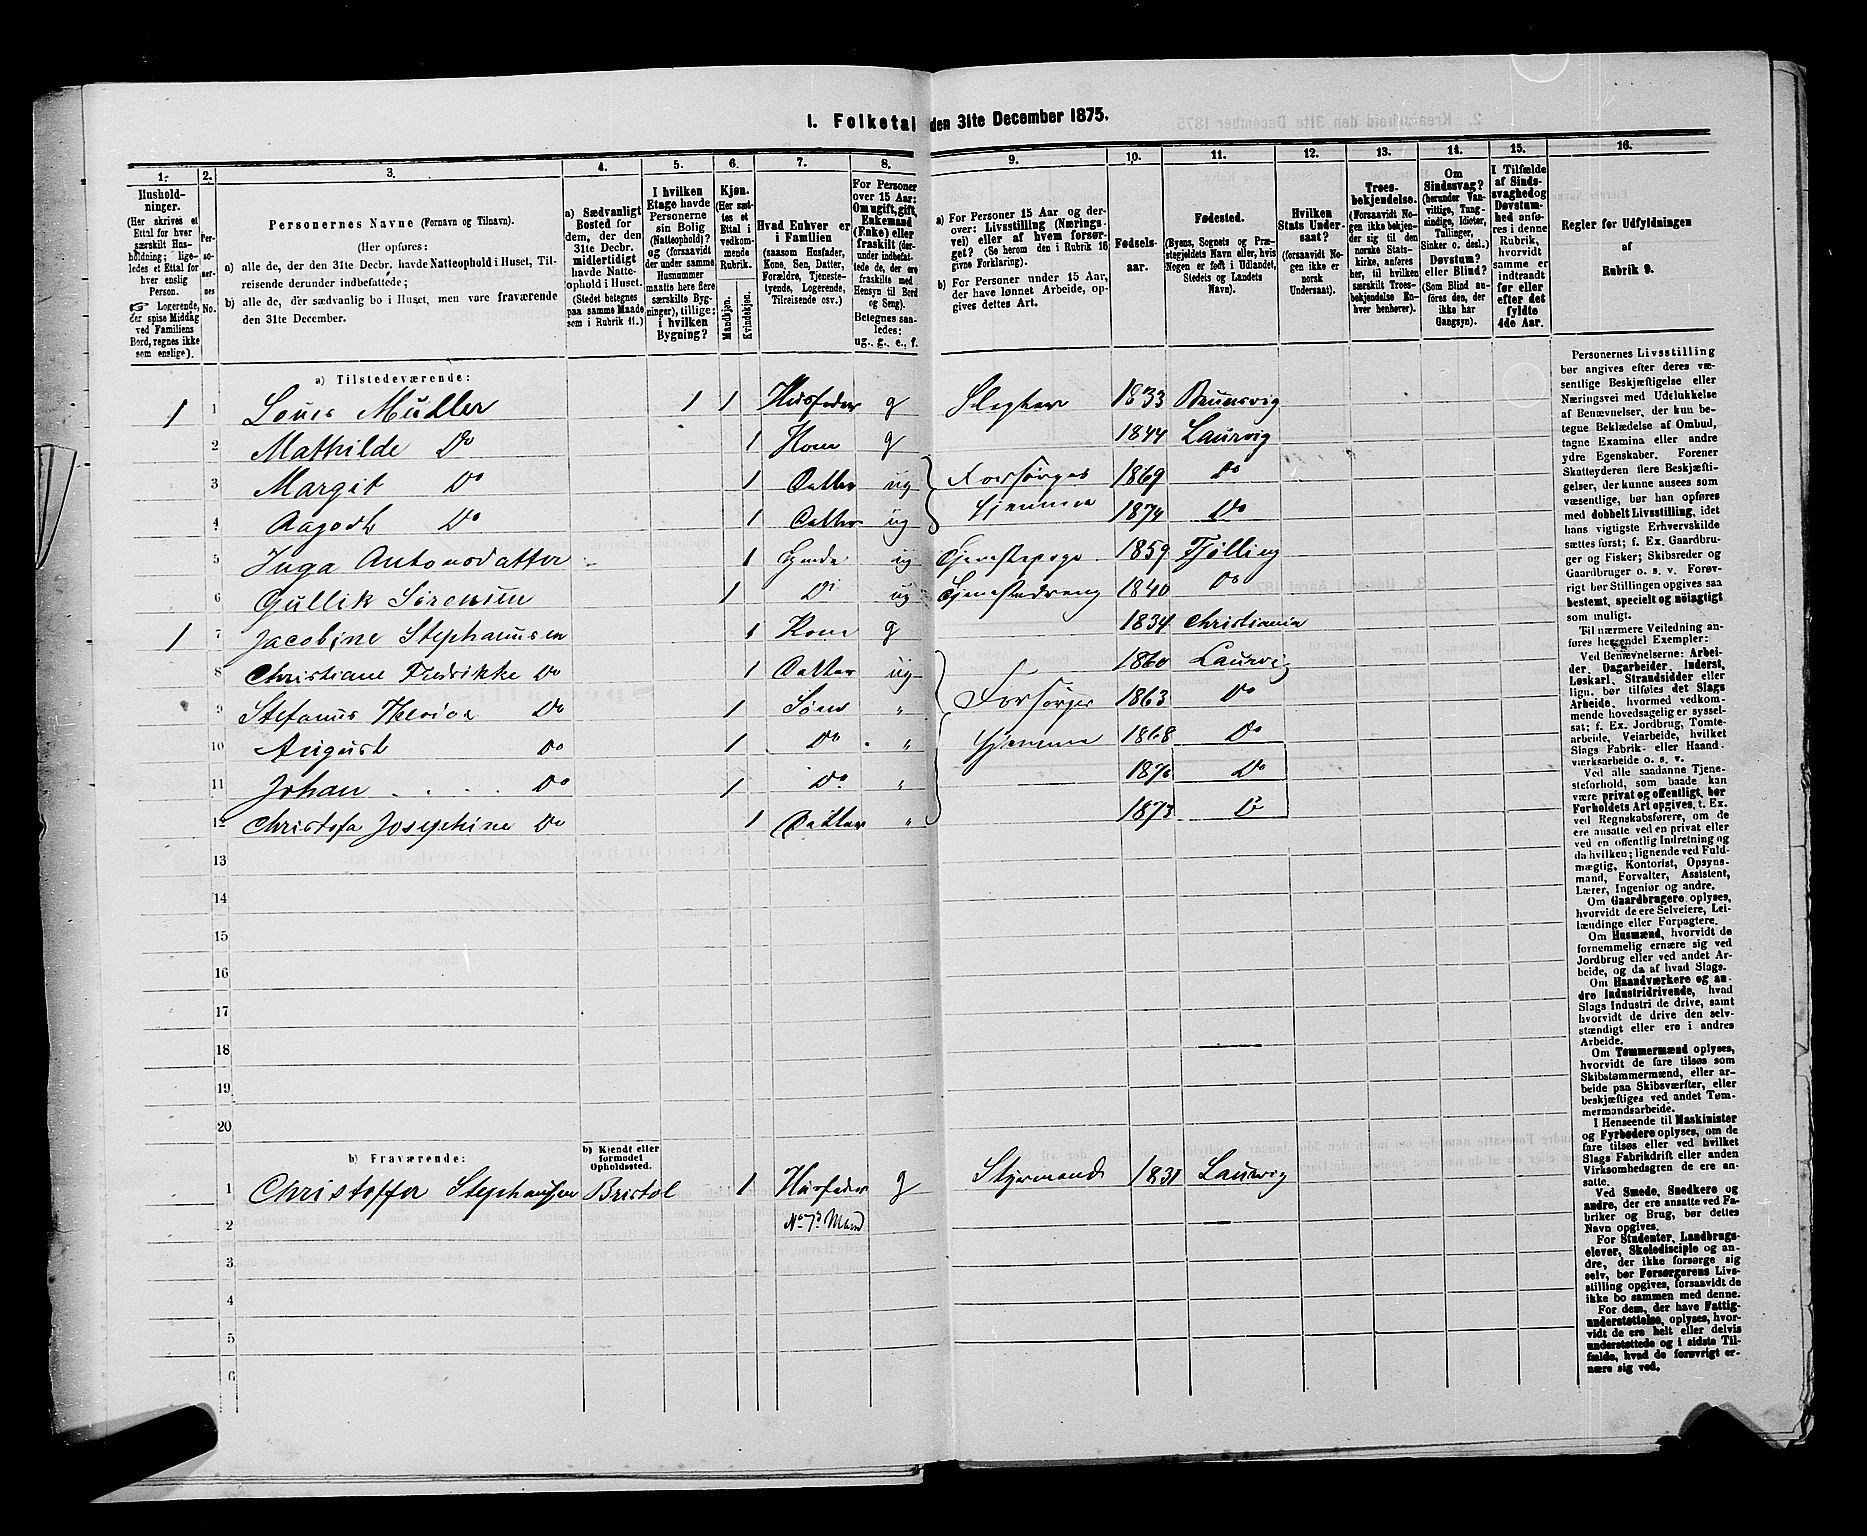 1. Folketal den 31te December 1875.
1. 2. 3. 4. 5. 6. 7. 8. 9. 10. 11. 12. 13. 14. 15. 16.
Hushold-
ninger.
(Her skrives et
Ettal for hver
særskilt Hus-
holdning; lige-
ledes et Ettal for
hver enslig
Person.
☞ Logerende,
der spise Middag
ved Familiens
Bord, regnes ikke
som enslige).
Per-
so-
ner-
nes
No.
Personernes Navne (Fornavn og Tilnavn).
(Her opføres:
a) alle de, der den 31te Decbr. havde Natteophold i Huset, Til-
reisende derunder indbefattede;
b) alle de, der sædvanlig bo i Huset, men vare fraværende
den 31te December.
a) Sædvanligt
Bosted for
dem, der den
31te Decbr.
midlertidigt
havde Natte-
ophold i Huset.
(Stedet betegnes
paa samme Maade
som i Rubrik 11.)
I hvilken
Etage havde
Personerne
sin Bolig
(Natteophold)?
og (forsaavidt
der under samme
Husnummer
maatte høre flere
særskilte Byg-
ninger), tillige:
i hvilken
Bygning?
Kjøn.
(Her sæt-
tes et
Ettal i
vedkom-
mende
Rubrik.
Mandkjøn.
Kvindekjøn.
Hvad Enhver er
i Familien
(saasom Husfader,
Kone, Søn, Datter,
Forældre, Tjeneste-
tyende, Logerende,
Tilreisende osv.)
For Personer
over 15 Aar:
Om ugift, gift,
Enkemand
(Enke) eller
fraskilt (der-
under indbefat-
tede de, der ere
fraskilte med
Hensyn til Bord
og Seng).
Betegnes saa-
ledes:
ug., g., e., f.
a) For Personer 15 Aar og der-
over: Livsstilling (Nærings-
vei) eller af hvem forsør-
get? (Se herom den i Rubrik 16
givne Forklaring).
b) For Personer under 15 Aar,
der have lønnet Arbeide, op-
gives dettes Art.
Fødsels-
aar.
Fødested.
(Byens, Sognets og Præ-
stegjeldets Navn eller, hvis
Nogen er født i Udlandet,
Stedets og Landets
Navn).
Hvilken
Stats Under-
saat?
(forsaavidt No-
gen ikke er
norsk
Undersaat).
Troes-
bekjendelse.
(Forsaavidt No-
gen ikke bekjen-
der sig til den
norske Stats-
kirke, anføres
her, til hvilken
særskilt Troes-
bekjendelse En-
hver henhører).
Om
Sindssvag?
(herunder Van-
vittige, Tung-
sindige, Idioter,
Tullinger,
Sinker o. desl.)
Døvstum?
eller Blind?
(Som Blind an-
føres den, der
ikke har
Gangsyn).
I Tilfælde
af Sinds-
svaghed og
Døvstum-
hed anfø-
res i denne
Rubrik,
hvorvidt
samme er
indtraadt
før eller
efter det
fyldte
4de Aar.
Regler for Udfyldningen
af
Rubrik 9.
a) Tilstedeværende:
1 1 Louis Müller 1 1 Husfader g Slagter 1833 Brunsvig
2 Mathilde Do 1 Kone g 1844 Laurvig
3 Margit Do 1 Datter ug Forsørges 1869 Do
4 Aagodt Do 1 Datter ug Hjemme 1874 Do
5 Inga Antonsdatter 1 Tyende ug Tjenestepige 1859 Tjølling
6 Gullik Sørensen 1 Do ug Tjenestedreng 1840 Do
1 7 Jacobine Stephansen 1 Kone g 1834 Christiania
8 Christiane Fredrikke Do 1 Datter ug 1860 Laurvig
9 Stefanus Do 1 Søn „ Forsørges 1863 Do
10 August Do 1 Do „ Hjemme 1868 Do
11 Johan Do 1 Do „ 1870 Do
12 Christofa Josephine Do 1 Datter „ 1873 Do
13
14
15
16
17
18
19
20
b) Fraværende:
b) Kjendt eller
formodet
Opholdssted.
1 Christoffer Stephansen Bristol 1 Husfader g Styrmand 1831 Laurvig
2 No 7s Mand
3
4
5
6
Personernes Livsstilling
bør angives efter deres væ-
sentlige Beskjæftigelse eller
Næringsvei med Udelukkelse
af Benævnelser, der kun be-
tegne Beklædelse af Ombud,
tagne Examina eller andre
ydre Egenskaber. Forener
Skatteyderen flere Beskjæfti-
gelser, der kunne ansees som
væsentlige, bør han opføres
med dobbelt Livsstilling, idet
hans vigtigste Erhvervskilde
sættes først; f. Ex. Gaardbru-
ger og Fisker; Skibsreder og
Gaardbruger o. s. v. Forøv-
rigt bør Stillingen opgives saa
bestemt, specielt og nöiagtigt
som muligt.
Til nærmere Veiledning an-
føres hennedel Exempler:
Ved Benævnelserne: Arbei-
der, Dagarbeider, Inderst,
Løskarl, Strandsidder eller
lign. bør tilføies det Slags
Arbeide, hvormed vedkom-
mende hovedsagelig er syssel-
sat; f. Ex. Jordbrug, Tomte-
arbeide, Veiarbeide, hvilket
Slags Fabrik- eller Haand-
værksarbeide o. s. v.
Ved alle saadanne Tjene-
steforhold, som baade kan
være privat og offentligt, bør
Forholdets Art opgives, t. Ex.
ved Regnskabsførere, om de
ere ansatte ved en privat eller
ved en offentlig Indretning og
da hvilken; lignende ved Fuld-
mægtig, Kontorist, Opsyns-
mand, Forvalter, Assistent,
Lærer, Ingeniør og andre.
Om Gaardbrugere oplyses,
hvorvidt de ere Selveiere, Lei-
lændinge eller Forpagtere.
Om Husmænd, hvorvidt de
fornemmelig ernære sig ved
Jordbrug eller ved andet Ar-
beide, og da af hvad Slags.
Om Haandværkere og an-
dre Industridrivende, hvad
Slags Industri de drive, samt
hvorvidt de drive den selv-
stændigt eller ere i andres
Arbeide.
Om Tømmermænd oplyses,
hvorvidt de fare tilsøs som
Skibstømmermænd, eller ar-
beide paa Skibsværfter, eller
beskjæftiges ved andet Tøm-
mermandsarbeide.
I Henseende til Maskinister
og Fyrbødere oplyses, om de
fare tilsøs eller ved hvilket
Slags Fabrikdrift eller anden
Virksomhedsgren de ere an-
satte.
Ved Smede, Snedkere og
andre, der ere ansatte ved Fa-
briker og Brug, bør dettes
Navn opgives.
For Studenter, Landbrugs-
elever, Skoledisciple og an-
dre, der ikke forsørge sig
selv, bør Forsørgerens Livs-
stilling opgives, forsaavidt de
ikke bo sammen med denne.
For dem, der have Fattig-
understøttelse, oplyses, hvor-
vidt de ere helt eller delvis
understøttede og i sidste Til-
fælde, hvad de forøvrigt er-
nære sig ved.